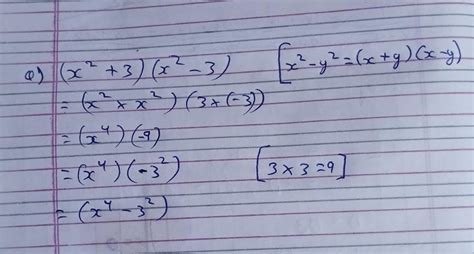 Q) (x² + 3) (x² - 3) [x² - y² = (x + y) (x - y)
= (x² × x²) (3 × (-3))
= (x⁴) (-9)
= (x⁴) (-3²) [3 × 3 = 9]
= (x⁴ - 3²)